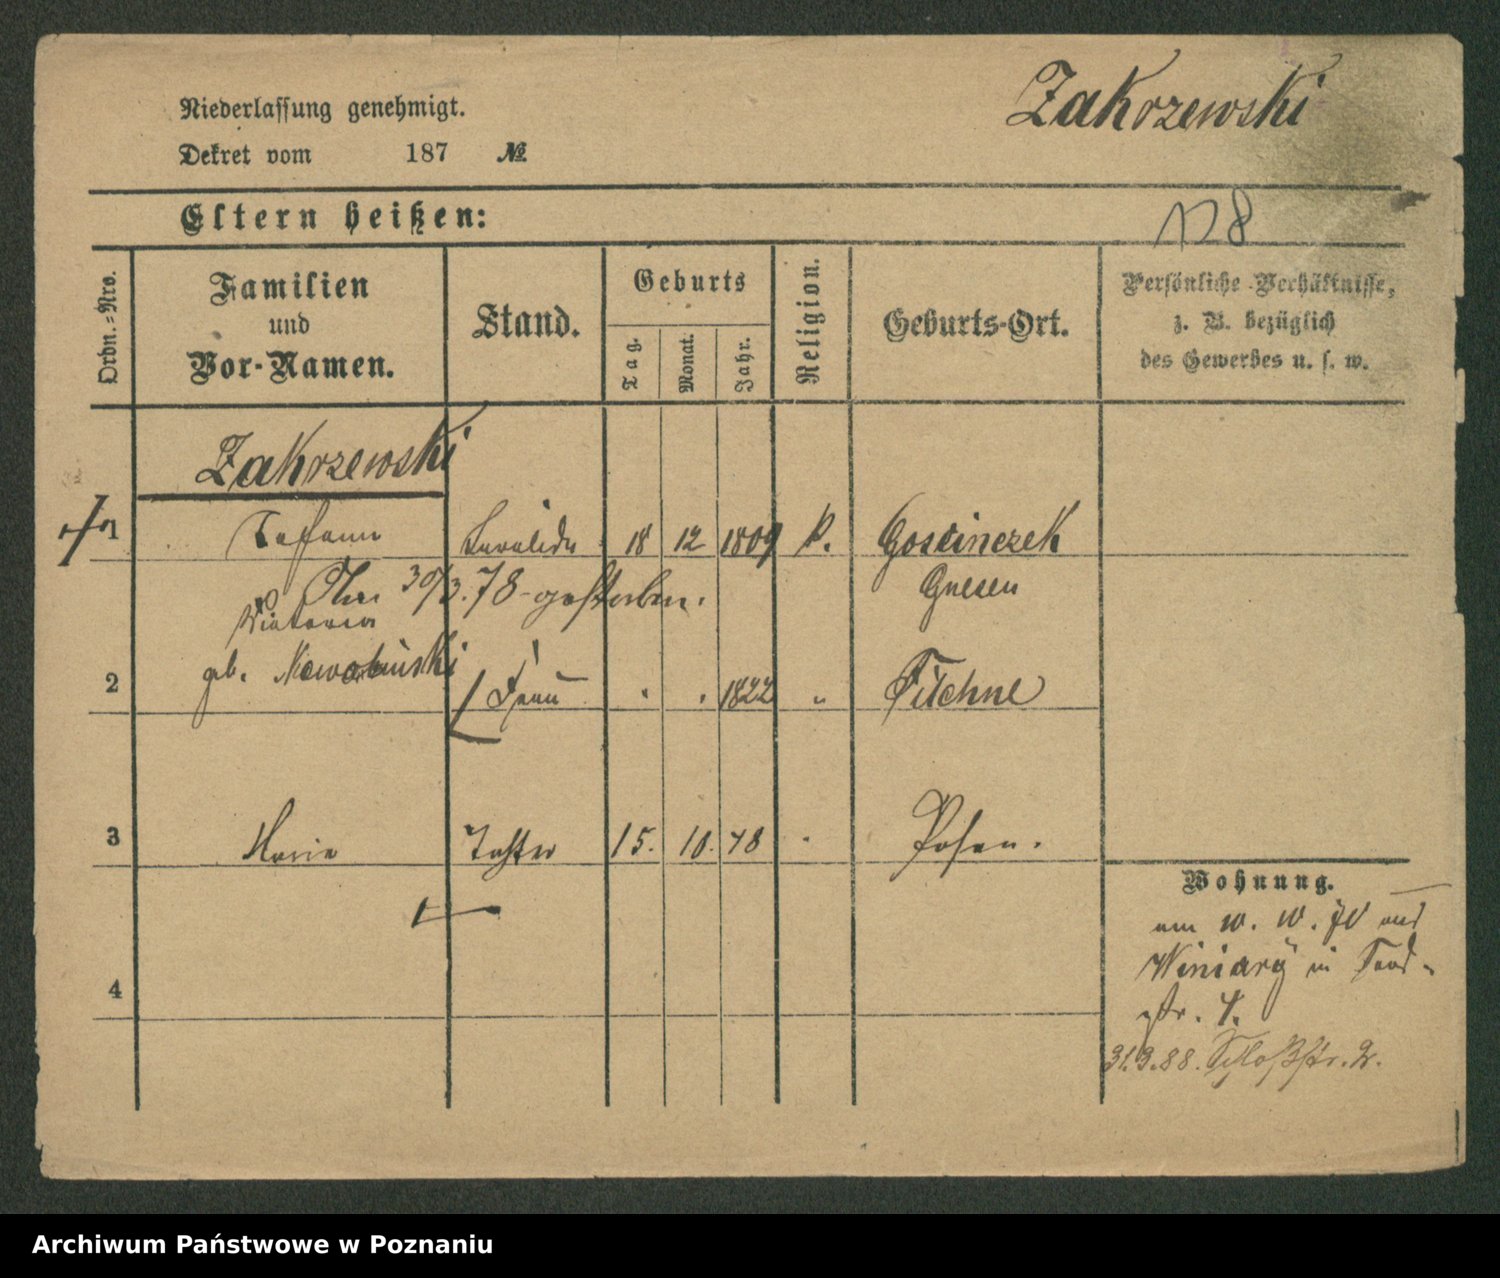 Zakrzewski
Niederlassung genehmigt.
Dekret vom 187 №
Eltern heißen:
178
Ordn.-Nro.
Familien
und
Vor-Namen.
Stand.
Geburts
Tag.
Monat.
Jahr.
Religion.
Geburts-Ort.
Persönliche Verhältnisse,
z. B. bezüglich
des Gewerbes u. s. w.
Zakrzewski
1 Invalide 18 12 1809 k. Goscinczek
Am 30/3.78 gestorben. Gnesen
Victoria
2 geb. Frau " " 1822 " Filehne
3 Marie Tochter 15. 10. 78 " Posen.
4
Wohnung.
am 10. 10. aus
Winiary in
str. 4.
31.3.88. Schloßstr. 2.
Archiwum Państwowe w Poznaniu